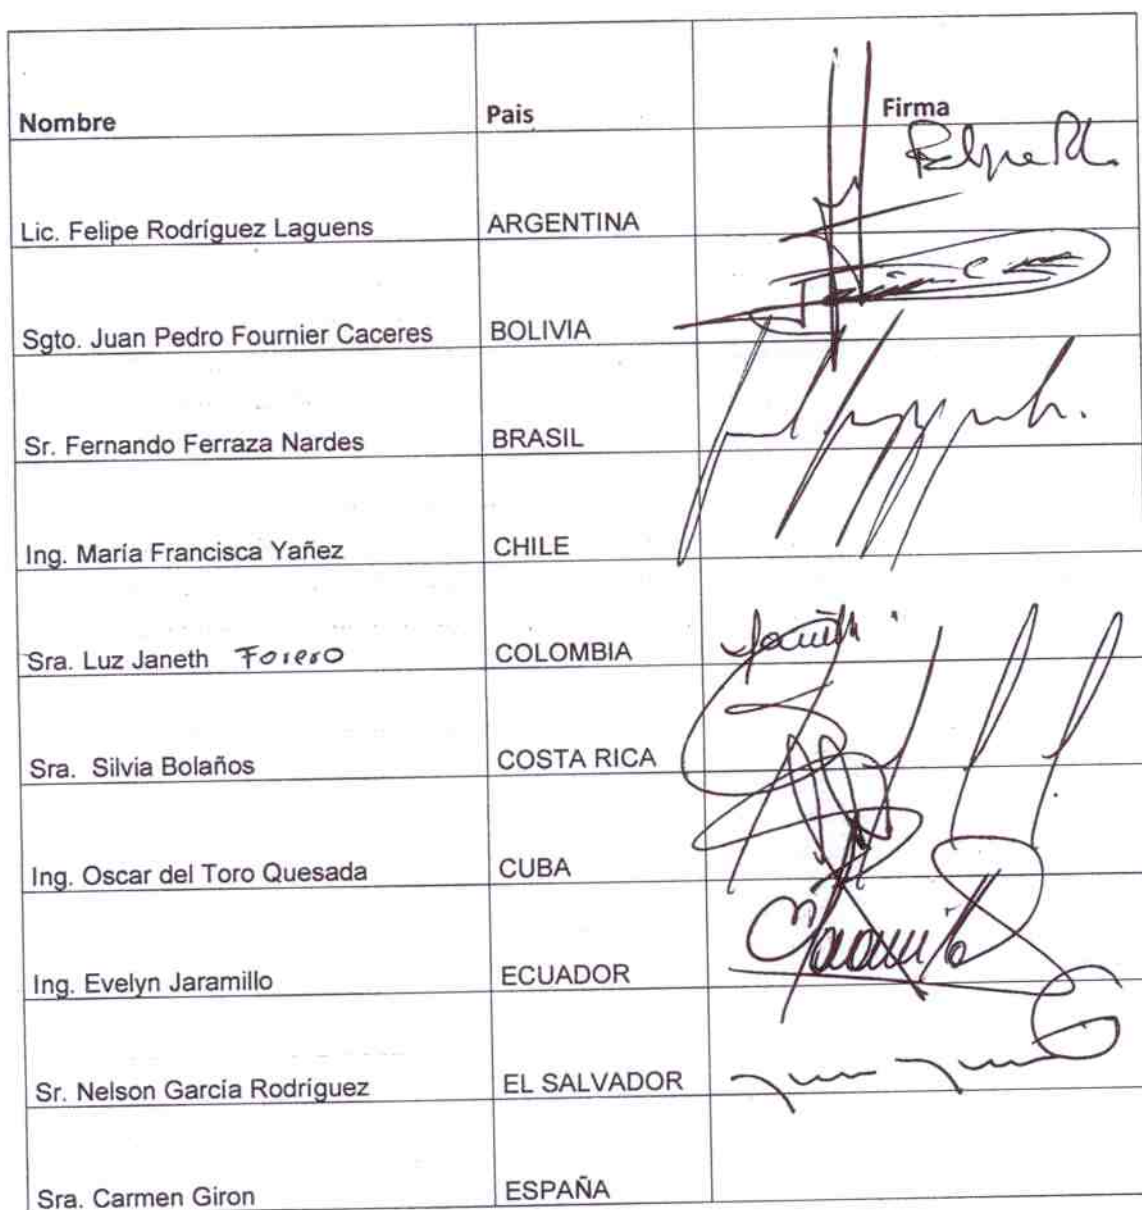 Nombre Pais Firma
Lic. Felipe Rodríguez Laguens ARGENTINA
Sgto. Juan Pedro Fournier Caceres BOLIVIA
Sr. Fernando Ferraza Nardes BRASIL
Ing. María Francisca Yañez CHILE
Sra. Luz Janeth Forero COLOMBIA
Sra. Silvia Bolaños COSTA RICA
Ing. Oscar del Toro Quesada CUBA
Ing. Evelyn Jaramillo ECUADOR
Sr. Nelson García Rodríguez EL SALVADOR
Sra. Carmen Giron ESPAÑA